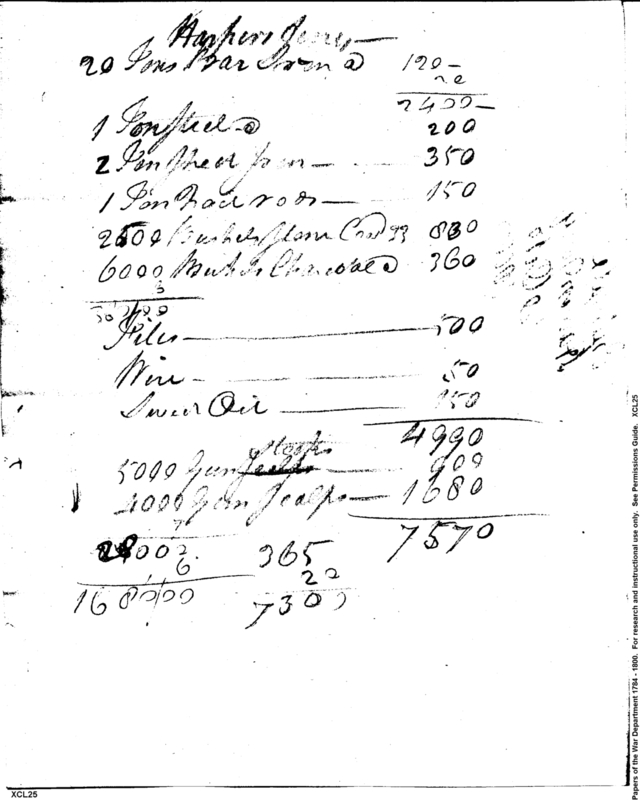 Harpers Ferry—
20 Tons Bar Iron @ 120—
20
2400—
1 Ton Steel @ 200
2 Ton Sheet Iron — 350
1 Ton nail rods — 150
2500 Bushels Stone Coal 33 830
6000 Bush Charcoal @ 360
6
360,00
Files — 500
Wire — 50
Sweet Oil — 150
4990
Stocks
5000 Gun — 900
4000 Gun Scalps — 1680
7
7570
28000 365
6 20
1680,00 7300
XCL25
Papers of the War Department 1784 - 1800. For research and instructional use only. See Permissions Guide. XCL25